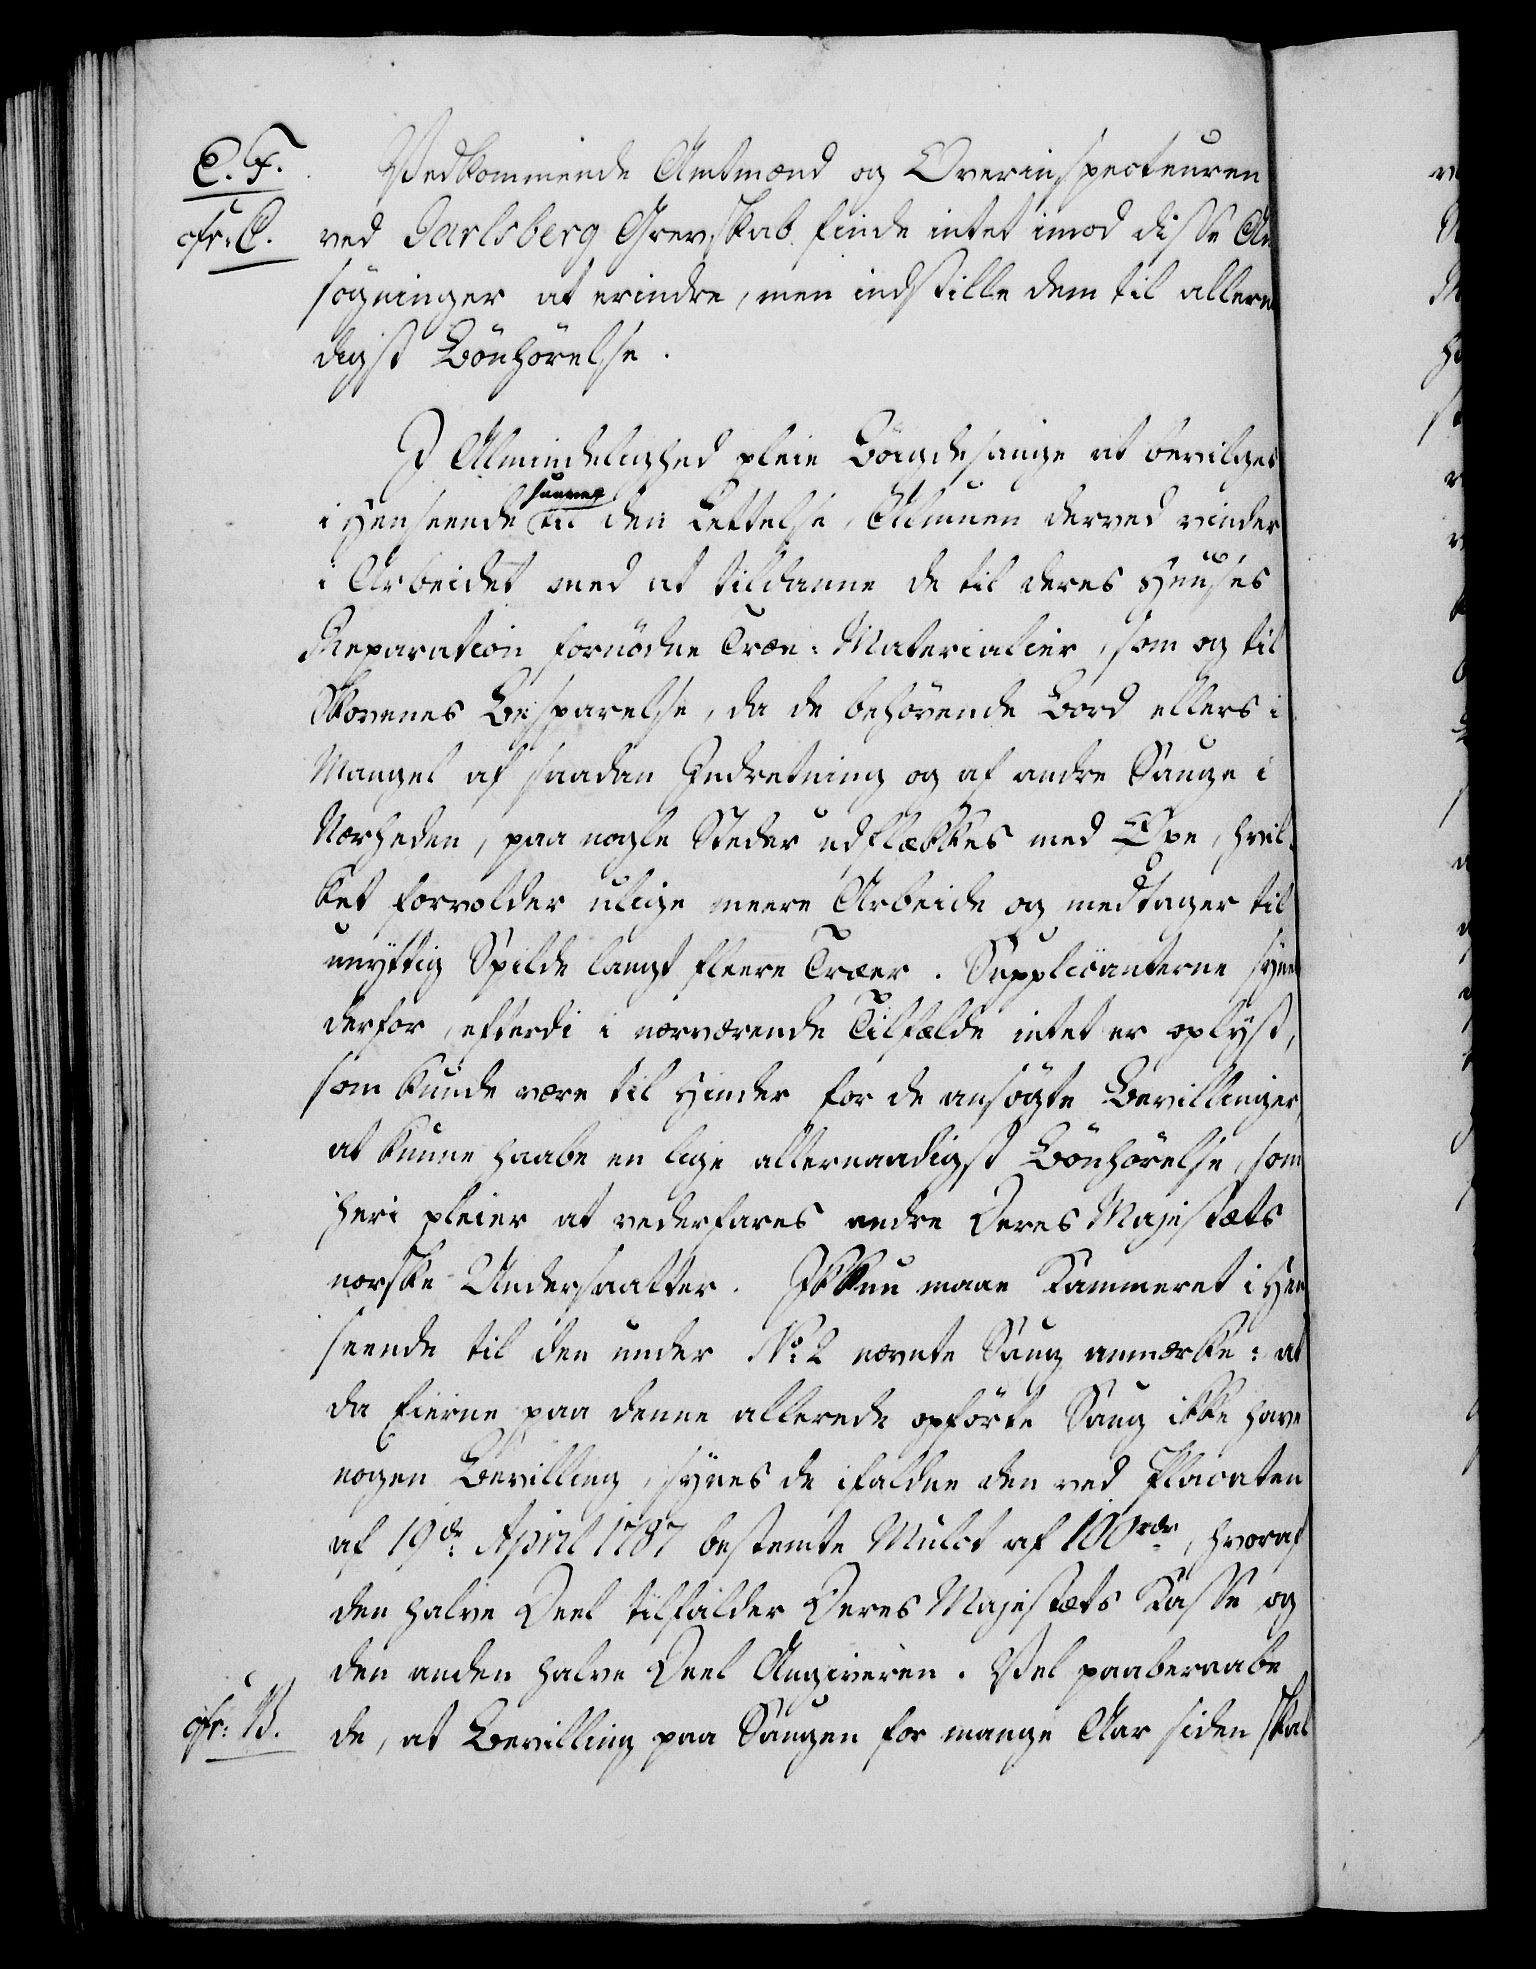 C. F.
cfr: C.
Vedkommende Amtmænd og Overinspecteuren
ved Jarlsberg Grevskab finde intet imod disse An
søgninger at erindre, men indstille dem til allern
digst Bönhörelse.
I Almindelighed pleie Böigdesauge at bevilges
saavel
i Henseende til den Lettelse, Almuen derved vinder
i Arbeidet med at tildanne de til deres Huuses
Reparation fornödne Træe-Materialier, som og til
Skovenes Besparelse, da de behövende Bord ellers i
Mangel af saadan Indretning og af andre Sauge i
Nærheden, paa nogle Steder udflækkes med Öxe, hvil-
ket forvolder ulige meere Arbeide og medtager til
unyttig Spilde langt fleere Træer. Supplicanterne synes
derfor, efterdi i nærværende Tilfælde intet er oplyst,
som kunde være til Hinder for de ansögte Bevillinger,
at kunne haabe en lige allernaadigst Bönhörelse, som
heri pleier at vederfares andre Deres Majestæts
norske Undersaatter. Ikkun maae Kammeret i Hen
seende til den under No: 2 nævnte Saug anmærke: at
da Eierne paa denne allerede opförte Saug ikke have
nogen Bevilling, synes de ifaldne den ved Placaten
af 19de April 1787 bestemte Mulct af 100 rdr, hvoraf
den halve Deel tilfalder Deres Majestæts Kasse og
den anden halve Deel Angiveren. Vel paaberaabe
cfr: B.
de, at Bevilling paa Saugen for mange Aar siden skal